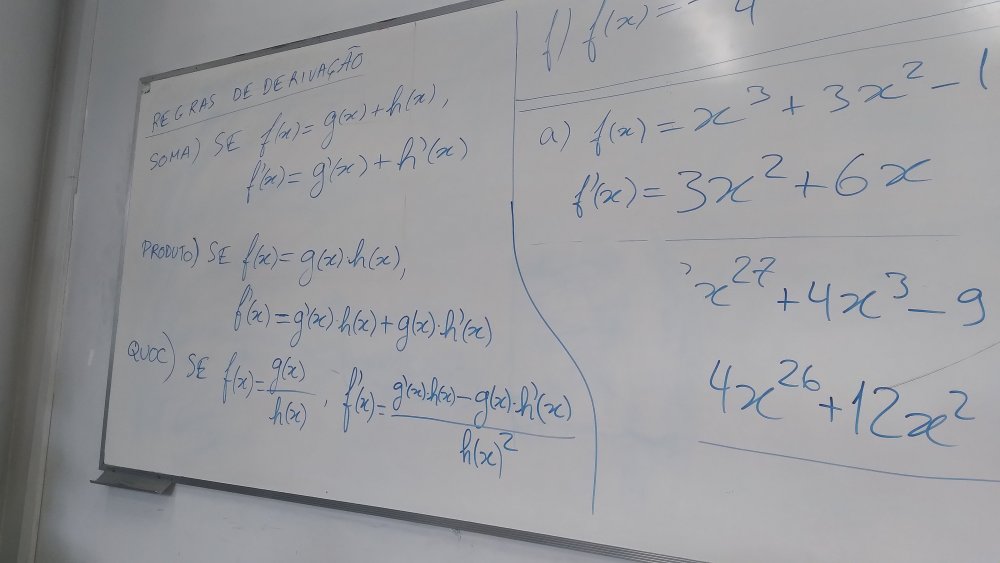 REGRAS DE DERIVAÇÃO
SOMA) SE f(x) = g(x) + h(x),
f'(x) = g'(x) + h'(x)
PRODUTO) SE f(x) = g(x)·h(x),
f'(x) = g'(x)·h(x) + g(x)·h'(x)
QUOC) SE f(x) = g(x)/h(x), f'(x) = g'(x)·h(x) - g(x)·h'(x)/h(x)²
f) f(x) =
a) f(x) = x³ + 3x² - 1
f'(x) = 3x² + 6x
x²⁷ + 4x³ - 9
4x²⁶ + 12x²